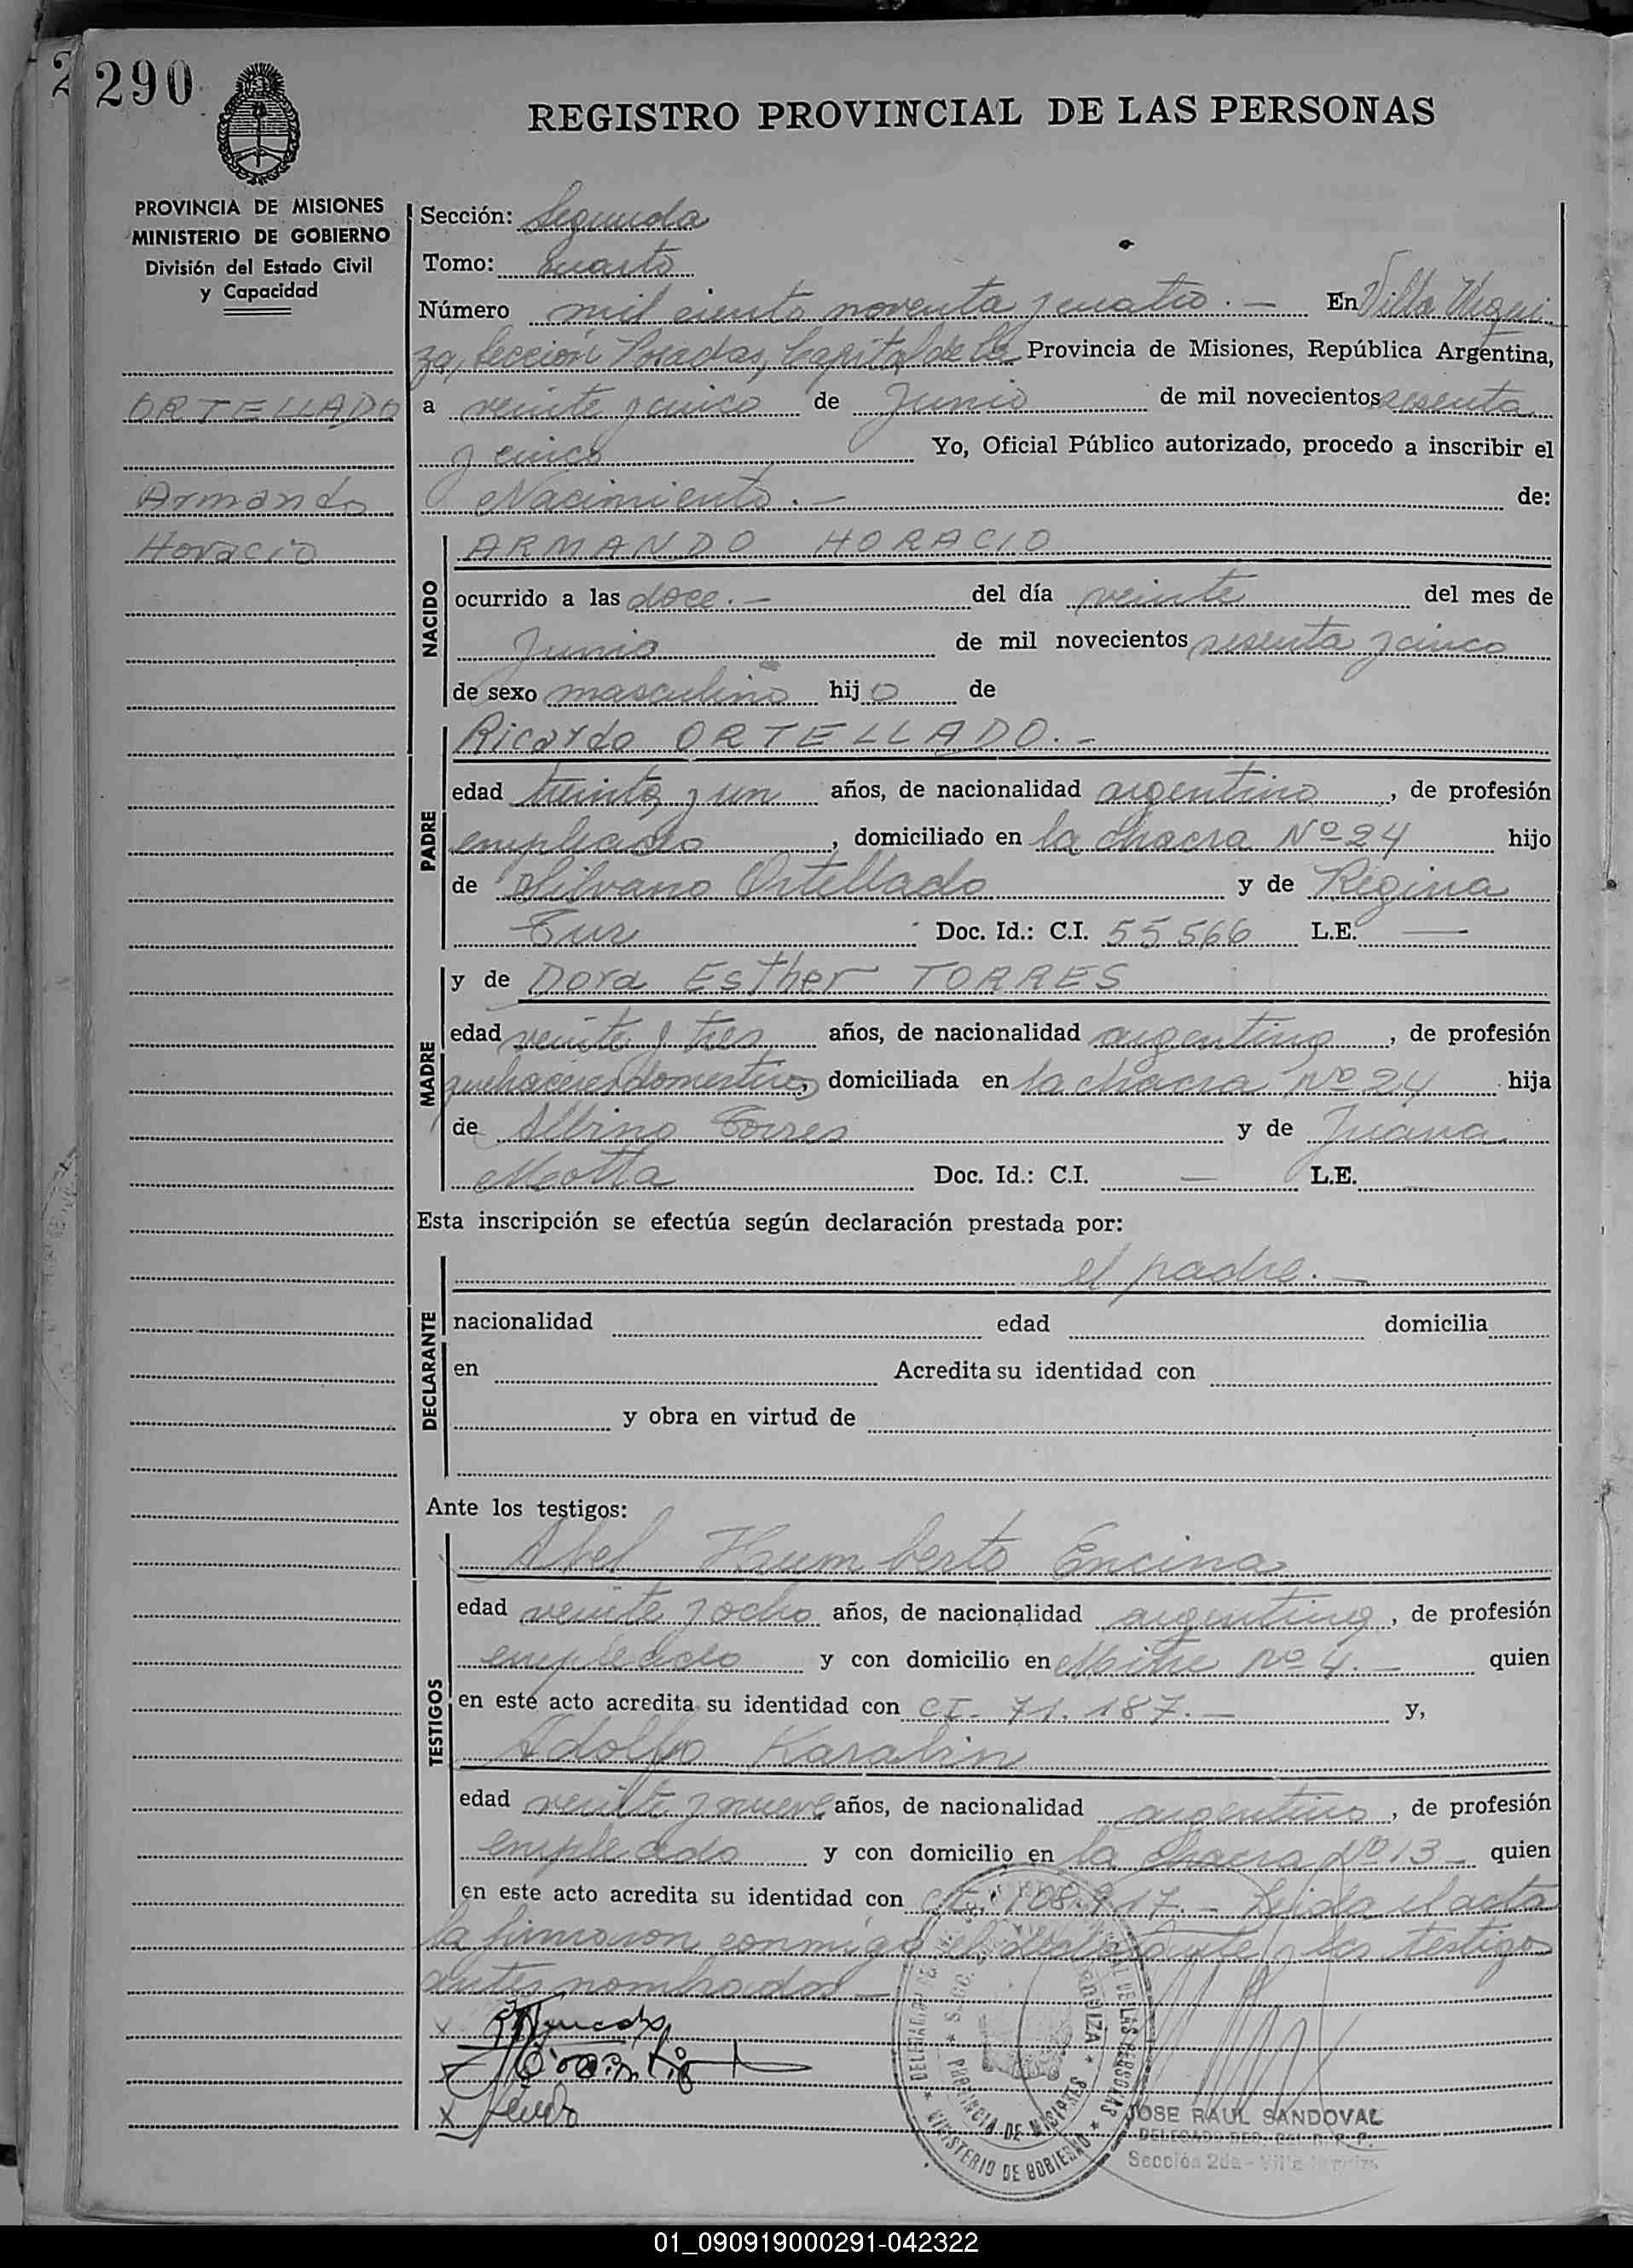 290
REGISTRO PROVINCIAL DE LAS PERSONAS
PROVINCIA DE MISIONES
MINISTERIO DE GOBIERNO
División del Estado Civil
y Capacidad
ORTELLADO
Armando
Horacio
Sección: Segunda
Tomo: Cuarto
Número mil ciento noventa y cuatro.— En Villa Urqui
za, Sección Posadas, Capital de la Provincia de Misiones, República Argentina,
a veinte y cinco de Junio de mil novecientos sesenta
y cinco Yo, Oficial Público autorizado, procedo a inscribir el
Nacimiento.— de:
NACIDO
ARMANDO HORACIO
ocurrido a las doce.— del día veinte del mes de
Junio de mil novecientos sesenta y cinco
de sexo masculino hijo de
PADRE
Ricardo ORTELLADO.-
edad treinta y un años, de nacionalidad argentino, de profesión
empleado, domiciliado en la chacra Nº 24 hijo
de Silvano Ortellado y de Regina
Doc. Id.: C.I. 55566 L.E. —
MADRE
y de Dora Esther TORRES
edad veinte y tres años, de nacionalidad argentina, de profesión
quehaceres domesticos, domiciliada en la chacra Nº 24 hija
de Albino Torres y de Juana
Motta Doc. Id.: C.I. — L.E.
Esta inscripción se efectúa según declaración prestada por:
DECLARANTE
el padre.—
nacionalidad edad domicilia
en Acredita su identidad con
y obra en virtud de
Ante los testigos:
TESTIGOS
Abel Humberto Encina
edad veinte y ocho años, de nacionalidad argentino, de profesión
empleado y con domicilio en Mitre Nº 4.— quien
en este acto acredita su identidad con CI- 71.187.— y,
Adolfo Karabin
edad veinte y nueve años, de nacionalidad argentino, de profesión
empleado y con domicilio en la chacra Nº 13- quien
en este acto acredita su identidad con CI. 108.917.— Leida el acta
la firmaron conmigo el declarante y los testigos
antes nombrados—
MINISTERIO DE GOBIERNO
PROVINCIA DE MISIONES
JOSE RAUL SANDOVAL
Sección 2da - Villa Urquiza
01_090919000291-042322